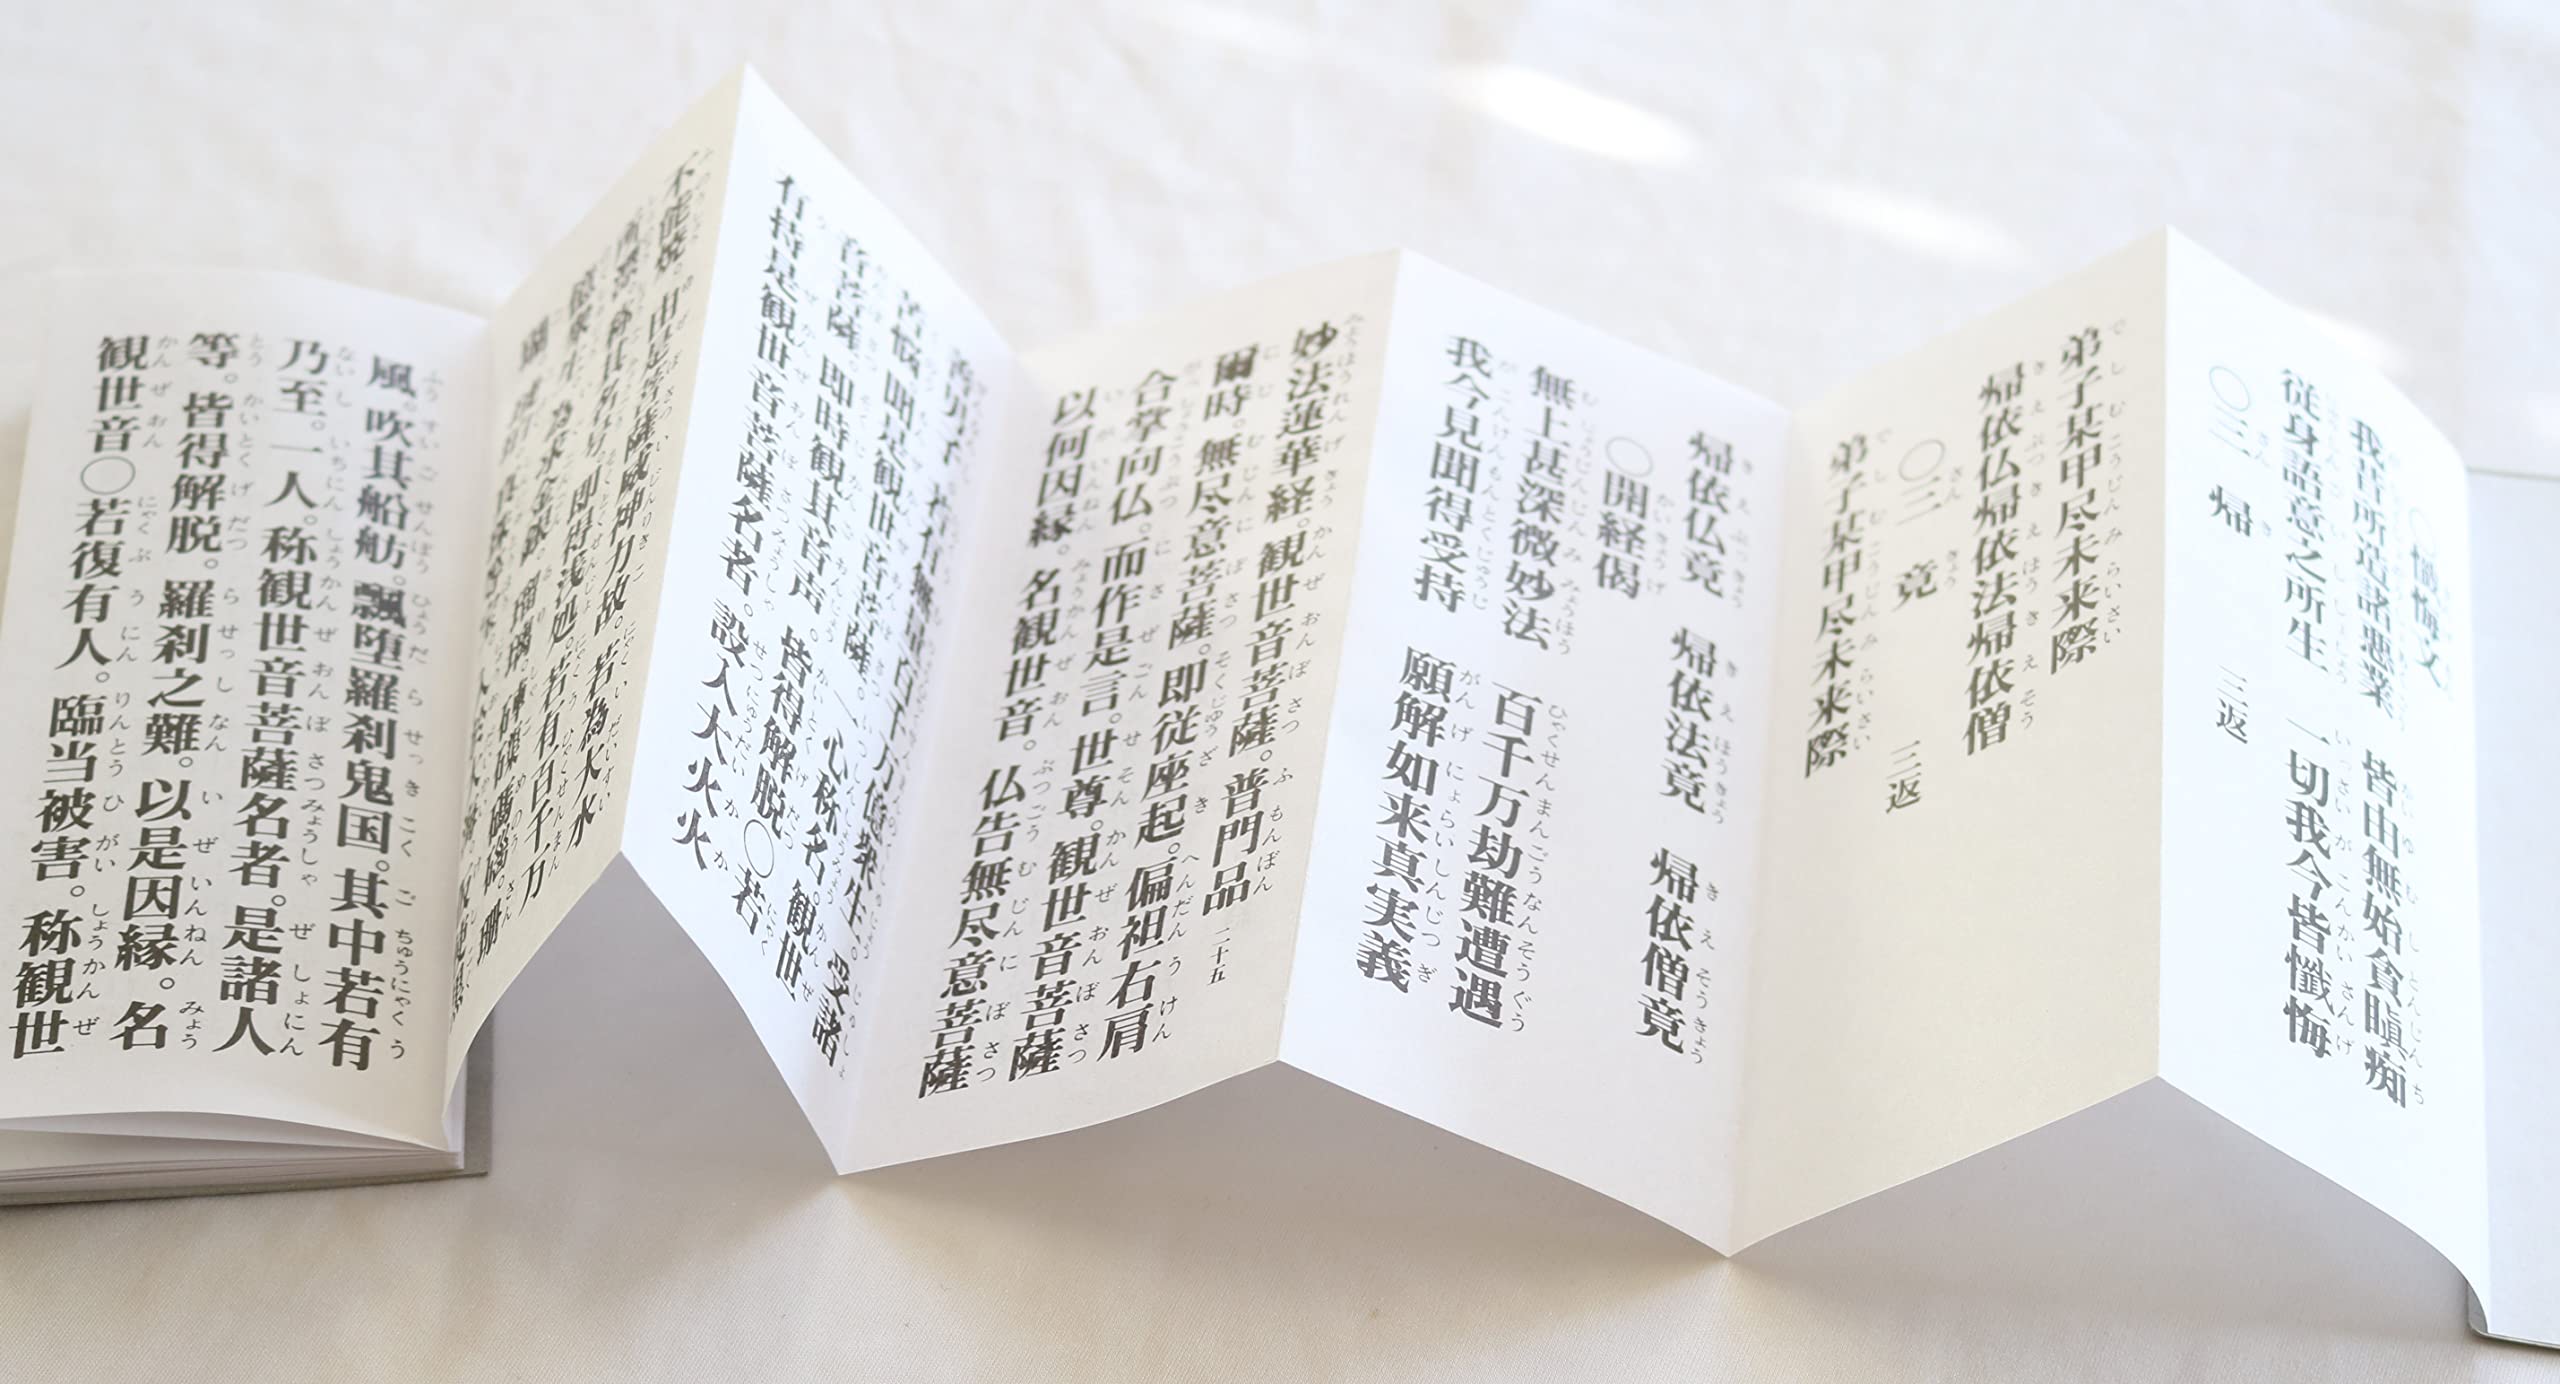 〇懺悔文
我昔所造諸悪業　皆由無始貪瞋痴
従身語意之所生　一切我今皆懺悔
〇三　帰　三返
弟子某甲尽未来際
帰依仏帰依法帰依僧
〇三　竟　三返
弟子某甲尽未来際
帰依仏竟　帰依法竟　帰依僧竟
〇開経偈
無上甚深微妙法　百千万劫難遭遇
我今見聞得受持　願解如来真実義
妙法蓮華経。観世音菩薩。普門品二十五
爾時。無尽意菩薩。即従座起。偏袒右肩
合掌向仏。而作是言。世尊。観世音菩薩
以何因縁。名観世音。仏告無尽意菩薩
善男子。若有無量百千万億衆生。受諸
苦悩。聞是観世音菩薩。一心称名。観世
音菩薩。即時観其音声。皆得解脱〇若
有持是観世音菩薩名者。設入大火火
不能焼。由是菩薩威神力故。若為大水
所漂。称其名号。即得浅処。若有百千万
億衆生。為求金銀。瑠璃。硨磲。碼碯。珊
風。吹其船舫。飄堕羅刹鬼国。其中若有
乃至。一人。称観世音菩薩名者。是諸人
等。皆得解脱。羅刹之難。以是因縁。名
観世音〇若復有人。臨当被害。称観世